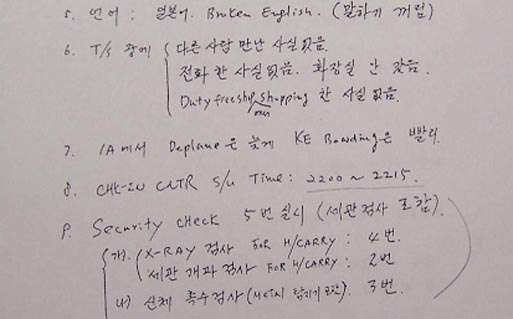 5. 언어 : 일본어. Broken English. (말하기 꺼림)
6. T/S 중에 { 다른 사람 만난 사실 없음.
전화 한 사실 없음. 화장실 안 갔음.
Duty free shop shopping 한 사실 없음.
7. IA에서 Deplane은 늦게 KE Boarding은 빨리.
8. CHK-IN CNTR S/U Time : 2200 ~ 2215.
9. Security check 5번 실시 (세관검사 포함)
가). X-RAY 검사 FOR H/CARRY : 4번.
세관 개과검사 FOR H/CARRY : 2번
나) 신체 촉수검사 (METAL 탐지기 포함). 3번.